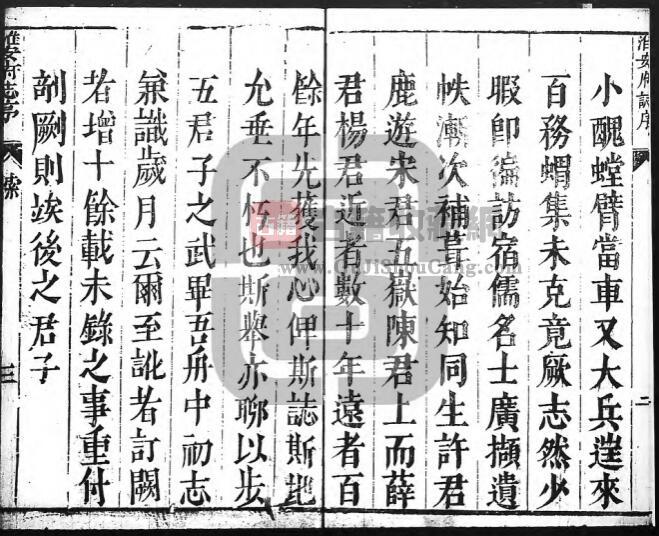 淮安府誌序
二
小醜螳臂當車又大兵遝來
百務蝟集未克竟厥志然少
暇卽徧訪宿儒名士廣擷遺
帙漸次補葺始知同生許君
鹿遊宋君五嶽陳君上而薛
君楊君近者數十年遠者百
餘年先獲我心俾斯誌斯地
允垂不朽也斯舉亦聊以步
五君子之武畢吾舟中初志
兼識歲月云爾至訛者訂闕
者增十餘載未錄之事重付
剞劂則竢後之君子
淮安府志序
三
古籍收藏網
www.GuJiShouCang.com